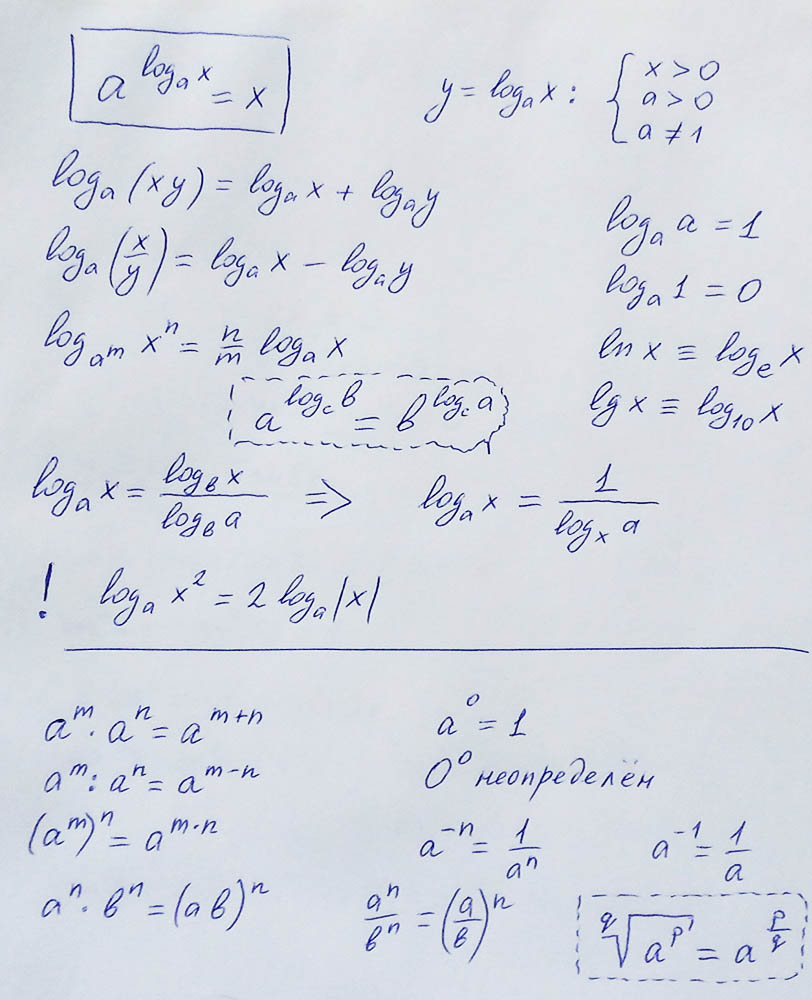 a^(log_a x) = x
y = log_a x : { x > 0
a > 0
a ≠ 1
log_a (xy) = log_a x + log_a y
log_a a = 1
log_a (x/y) = log_a x − log_a y
log_a 1 = 0
log_(a^m) x^n = n/m log_a x
ln x ≡ log_e x
a^(log_c в) = в^(log_c a)
lg x ≡ log_10 x
log_a x = log_в x / log_в a ⇒ log_a x = 1 / log_x a
! log_a x² = 2 log_a |x|
a^m · a^n = a^(m+n)
a^0 = 1
a^m : a^n = a^(m−n)
0^0 неопределён
(a^m)^n = a^(m·n)
a^(−n) = 1/a^n
a^(−1) = 1/a
a^n · в^n = (aв)^n
a^n/в^n = (a/в)^n
^q√(a^p) = a^(p/q)